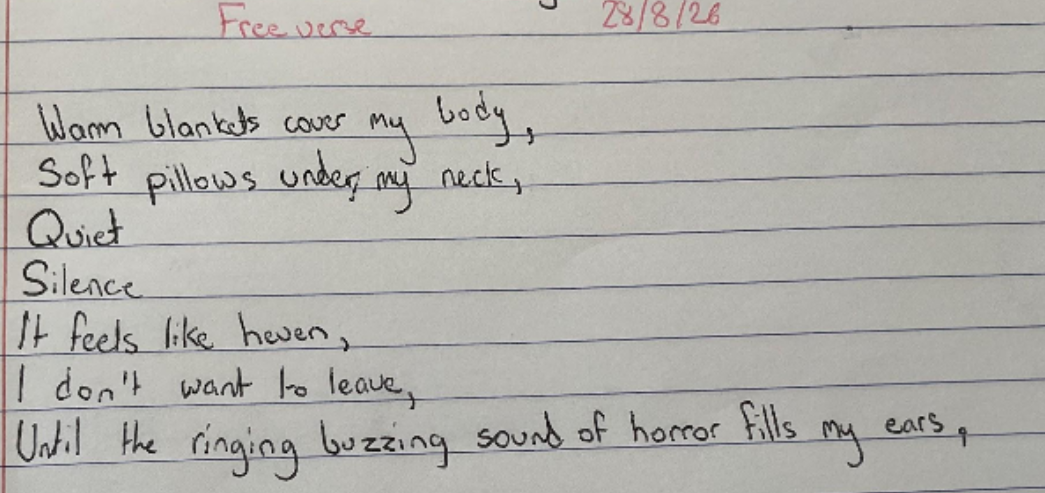 Free verse 28/8/26
Warm blankets cover my body,
Soft pillows under, my neck,
Quiet
Silence
It feels like heven,
I don't want to leave,
Until the ringing buzzing sound of horror fills my ears,